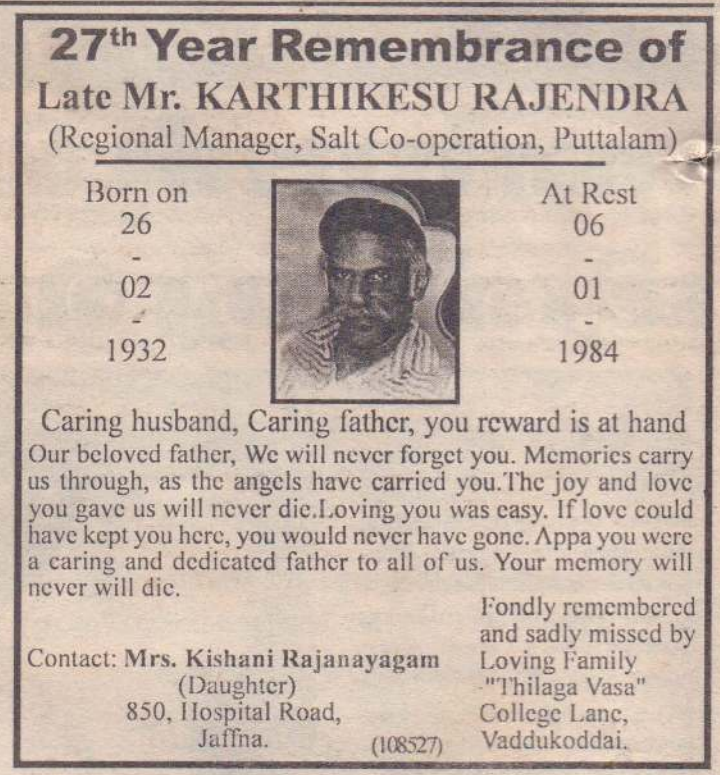 27th Year Remembrance of
Late Mr. KARTHIKESU RAJENDRA
(Regional Manager, Salt Co-operation, Puttalam)
Born on
26
-
02
-
1932
At Rest
06
-
01
-
1984
Caring husband, Caring father, you reward is at hand
Our beloved father, We will never forget you. Memories carry
us through, as the angels have carried you.The joy and love
you gave us will never die.Loving you was easy. If love could
have kept you here, you would never have gone. Appa you were
a caring and dedicated father to all of us. Your memory will
never will die.
Contact: Mrs. Kishani Rajanayagam
(Daughter)
850, Hospital Road,
Jaffna.
(108527)
Fondly remembered
and sadly missed by
Loving Family
"Thilaga Vasa"
College Lane,
Vaddukoddai.